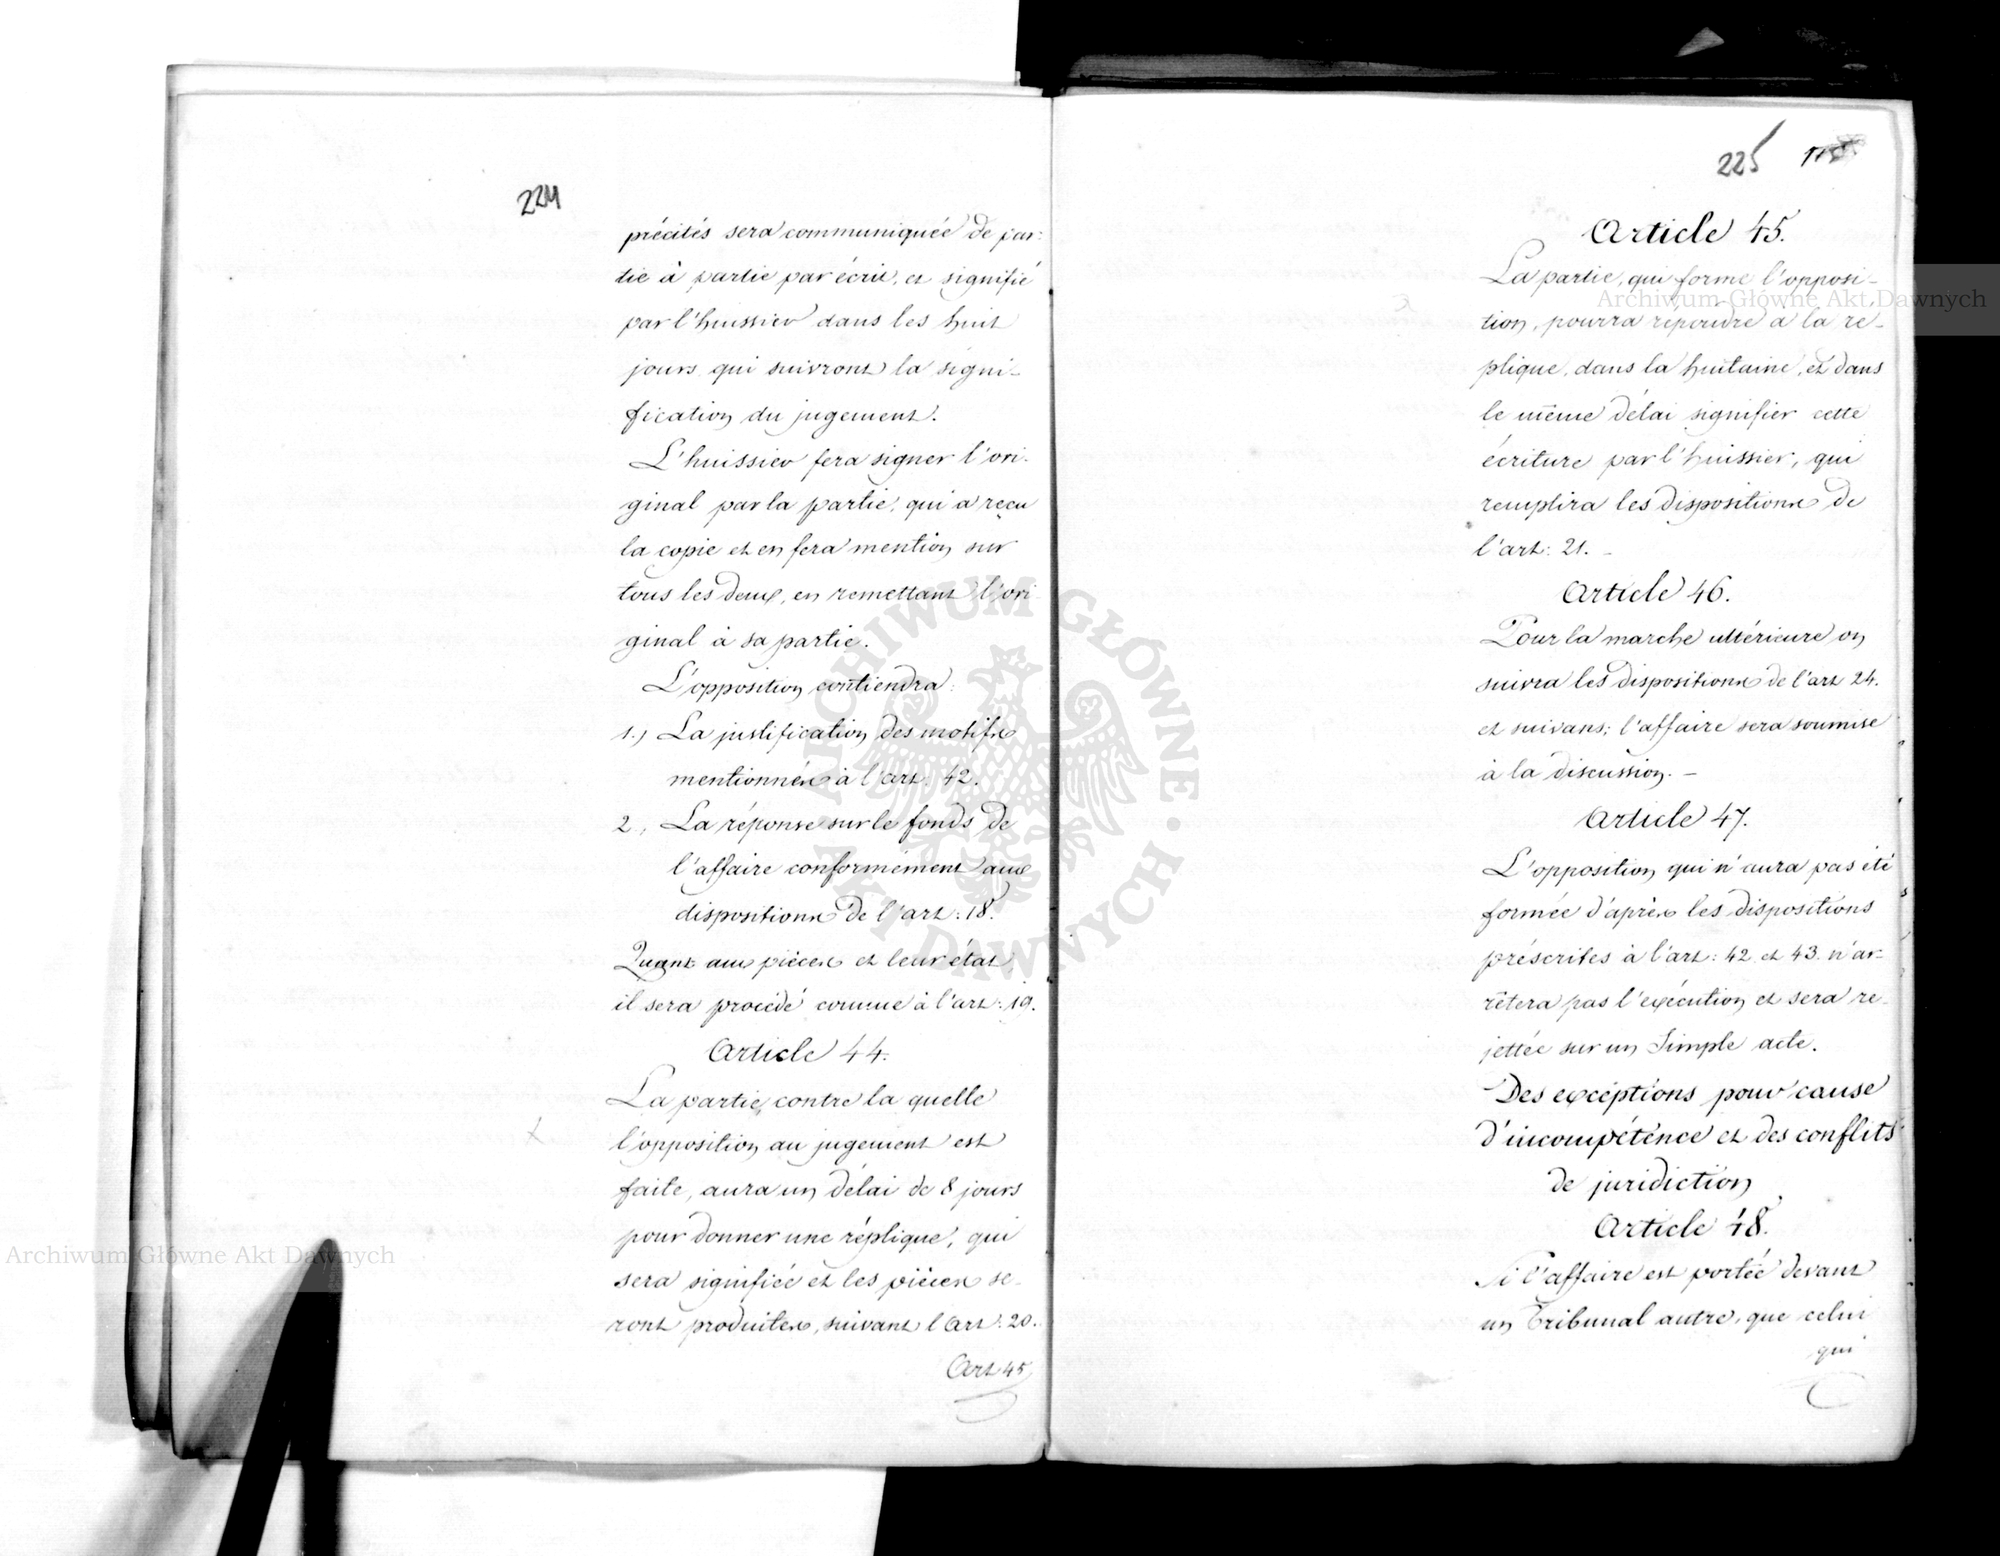 224
précités sera communiquée de par:
tie à partie par écrit, et signifié
par l'huissier dans les huit
jours qui suivront la signi-
fication du jugement.
L'huissier fera signer l'ori-
ginal par la partie, qui a reçu
la copie et en fera mention sur
tous les deux, en remettant l'ori-
ginal à sa partie.
L'opposition contiendra:
1.) La justification des motifs
mentionnés à l'art. 42.
2., La réponse sur le fonds de
l'affaire conformément aux
dispositions de l'art: 18.
Quant aux pièces et leur état,
il sera procédé comme à l'art: 19.
Article 44.
La partie, contre la quelle
l'opposition au jugement est
faite, aura un délai de 8 jours
pour donner une réplique, qui
sera signifiée et les pièces se-
ront produites, suivant l'Art: 20.
Art 45
225
Article 45.
La partie, qui forme l'opposi-
tion, pourra répondre a la re-
plique, dans la huitaine, et dans
le même délai signifier cette
écriture par l'huissier, qui
remplira les dispositions de
l'art: 21. -
Article 46.
Pour la marche ultérieure on
suivra les dispositions de l'art 24.
et suivans; l'affaire sera soumise
à la discussion. -
Article 47.
L'opposition qui n'aura pas été
formée d'après les dispositions
préscrites à l'art: 42 et 43. n'ar-
rêtera pas l'exécution et sera re-
jettée sur un Simple acte.
Des excéptions pour cause
d'incompétence et des conflits
de juridiction
Article 48.
Si l'affaire est portée devant
un Tribunal autre, que celui
qui
Archiwum Główne Akt Dawnych
Archiwum Główne Akt Dawnych
ARCHIWUM GŁÓWNE AKT DAWNYCH